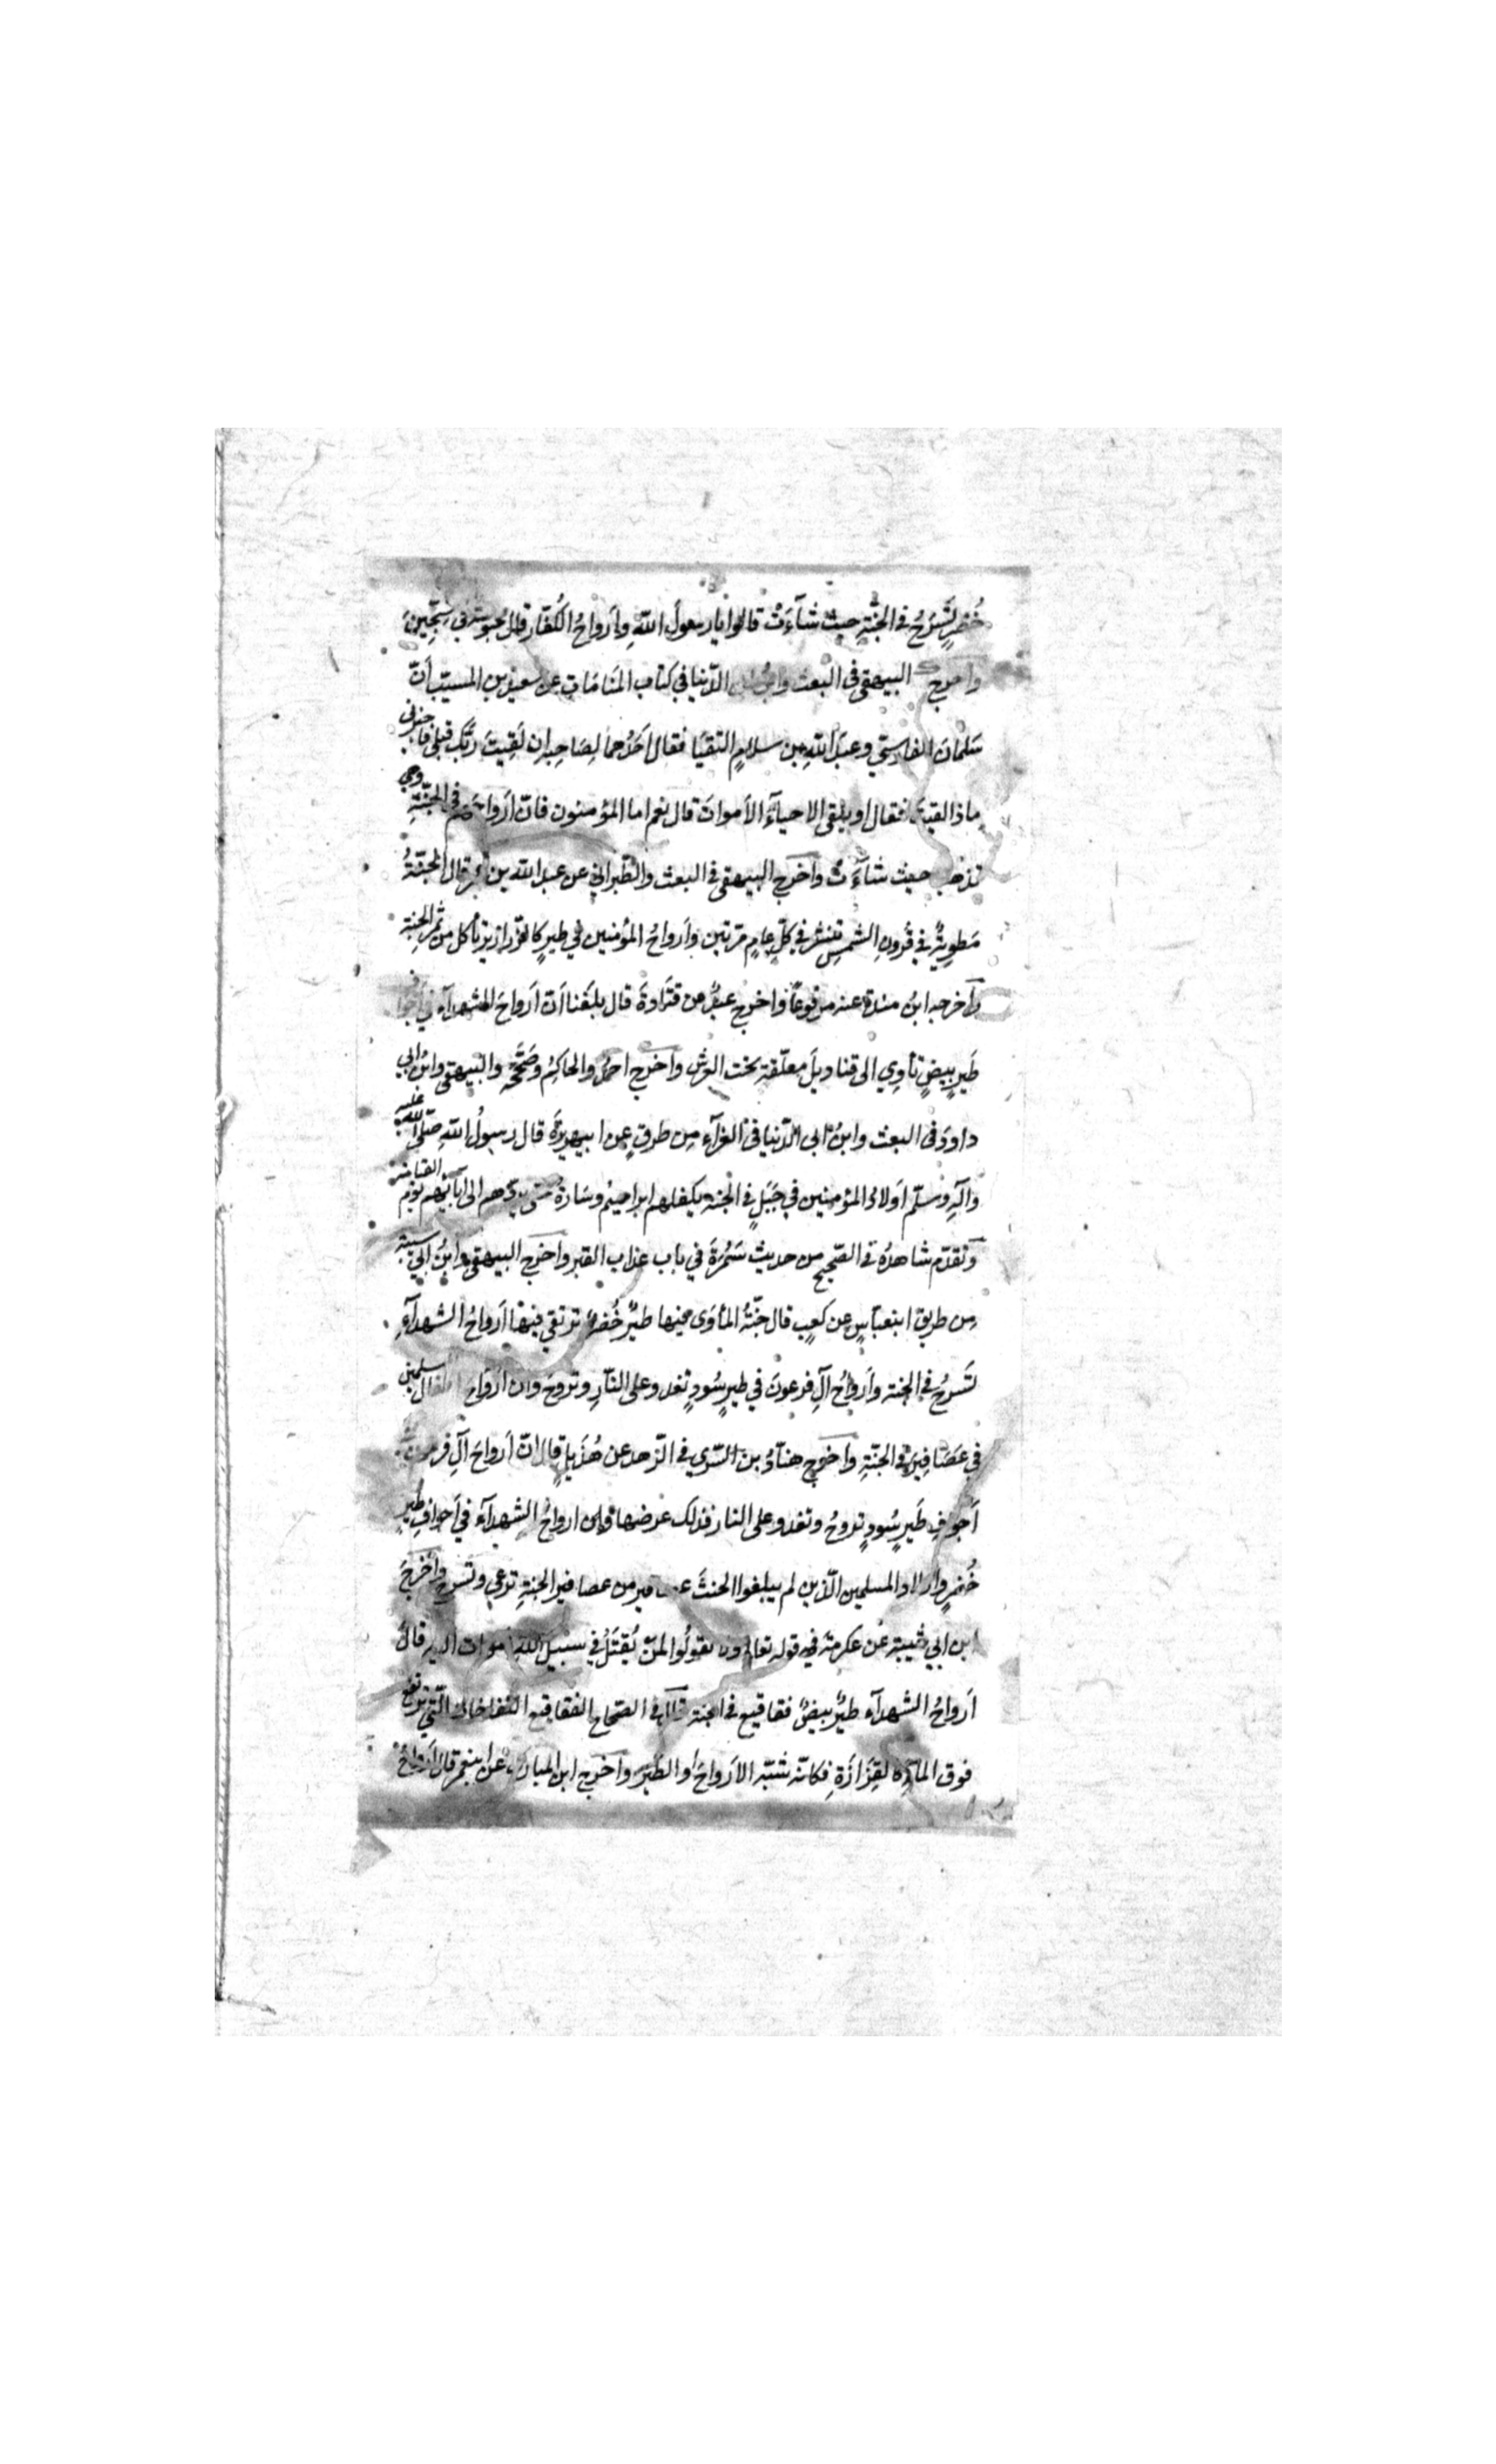 خُضرٍ تَسْرَحُ في الجنّةِ حيثُ شآءَتْ قالوا يا رسولَ اللهِ وأَرواحُ الكُفّار قال محبوسة في سِجّينٍ
واخرج البيهقي في البعث وابنُ ابي الدّنيا في كتاب المنَامَاتِ عن سعيد بن المسيّب أنّ
سَلمانَ الفارِسي وعبدَ اللهِ بن سلامٍ التقيَا فقال احَدُهما لِصَاحِبه ان لَقِيتَ رَبَّك قبلي فاخبرني
ماذا لقيتَ فقال او يلقى الاحيآءُ الأمواتَ قال نعم اما المؤمنون فانّ أرواحَهم في الجنّةِ وهي
تذهب حيث شآءَتْ واخرج البيهقي في البعث والطّبراني عن عبد الله بن عمر قال الجنّةُ
مَطويةٌ في قُرونِ الشمسِ تنشر في كلّ عامٍ مرّتين وأَرواحُ المؤمنين في طيرٍ كالزّرازير تأكل من ثمر الجنةِ
واخرجه ابنُ مندة عنه مرفوعًا واخرج عبدٌ عن قتَادةَ قال بلغَنا أنّ أرواحَ الشهدآءِ في أجواف
طَيرٍ بِيضٍ تأوِي الى قناديلَ معلّقة تحت العرش واخرج احمدُ والحاكِمُ وصَحّحه والبيهقي وابنُ ابي
داودَ في البعث وابنُ ابي الدّنيا في العزآءِ مِن طرقٍ عن ابي هريرةَ قال رسولُ اللهِ صلّى الله عليه
وآلهِ وسلّم أولادُ المؤمنين في جَبَلٍ في الجنة يكفلهم ابراهيمُ وسَارةُ حتى يردّهم الى آبائِهم يوم القيامة
وتقدّم شاهدُهُ في الصّحيح من حديث سَمُرَةَ في باب عذاب القبر واخرج البيهقي وابنُ ابي شيبة
مِن طريق ابن عبّاسٍ عن كَعبٍ قال جنّةُ المأوَى فيها طيرٌ خُضرٌ ترتقي فيها أرواحُ الشهدآءِ
تَسرَحُ في الجنة وأَرواحُ آلِ فرعونَ في طيرٍ سُودٍ تغدو على النّارِ وتروحُ وانّ أرواحَ اطفال المسلمين
في عَصَافِيرَ في الجنّةِ واخرج هنّادُ بن السّري في الزّهد عن هُذَيلٍ قال انّ أرواحَ آلِ فرعون في
أَجوافِ طَيرٍ سُودٍ تروحُ وتغدو على النار فذلك عرضها وان ارواحَ الشهدآءِ في أجوافِ طيرٍ
خُضرٍ وأولاد المسلمين الّذين لم يبلغوا الحنثَ عصافير من عصافير الجنةِ ترعى وتَسرح واخرجَ
ابن ابي شيبة عن عكرمةَ في قوله تعالى ولا تقولُوا لمن يُقتَلُ في سبيلِ اللهِ اموات الآية قالَ
أرواحُ الشهدآء طيرٌ بيضٌ فقاقيع في الجنة قال في الصّحاح الفقاقيع النّفاخات الّتي ترتفع
فوق المآءِ كقِزَازَةٍ فكانّه شبّه الأرواحَ او الطّيرَ واخرج ابن المبارك عن ابن عمر قال أرواحُ